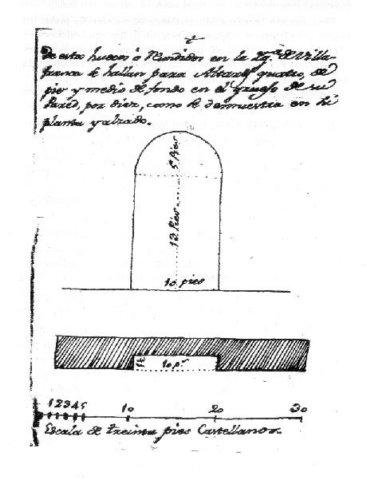 De estos huecos ó Rendidos en la Yg.ª de Villa-
franca se hallan para Altares quatro, de
pie y medio de fondo en el grueso de su
Pared, por diez, como se demuestra en su
planta y alzado.
5 Pies
13 Pies
10 pies
10 p.s
1 2 3 4 5 10 20 30
Escala de treinta pies Castellanos.